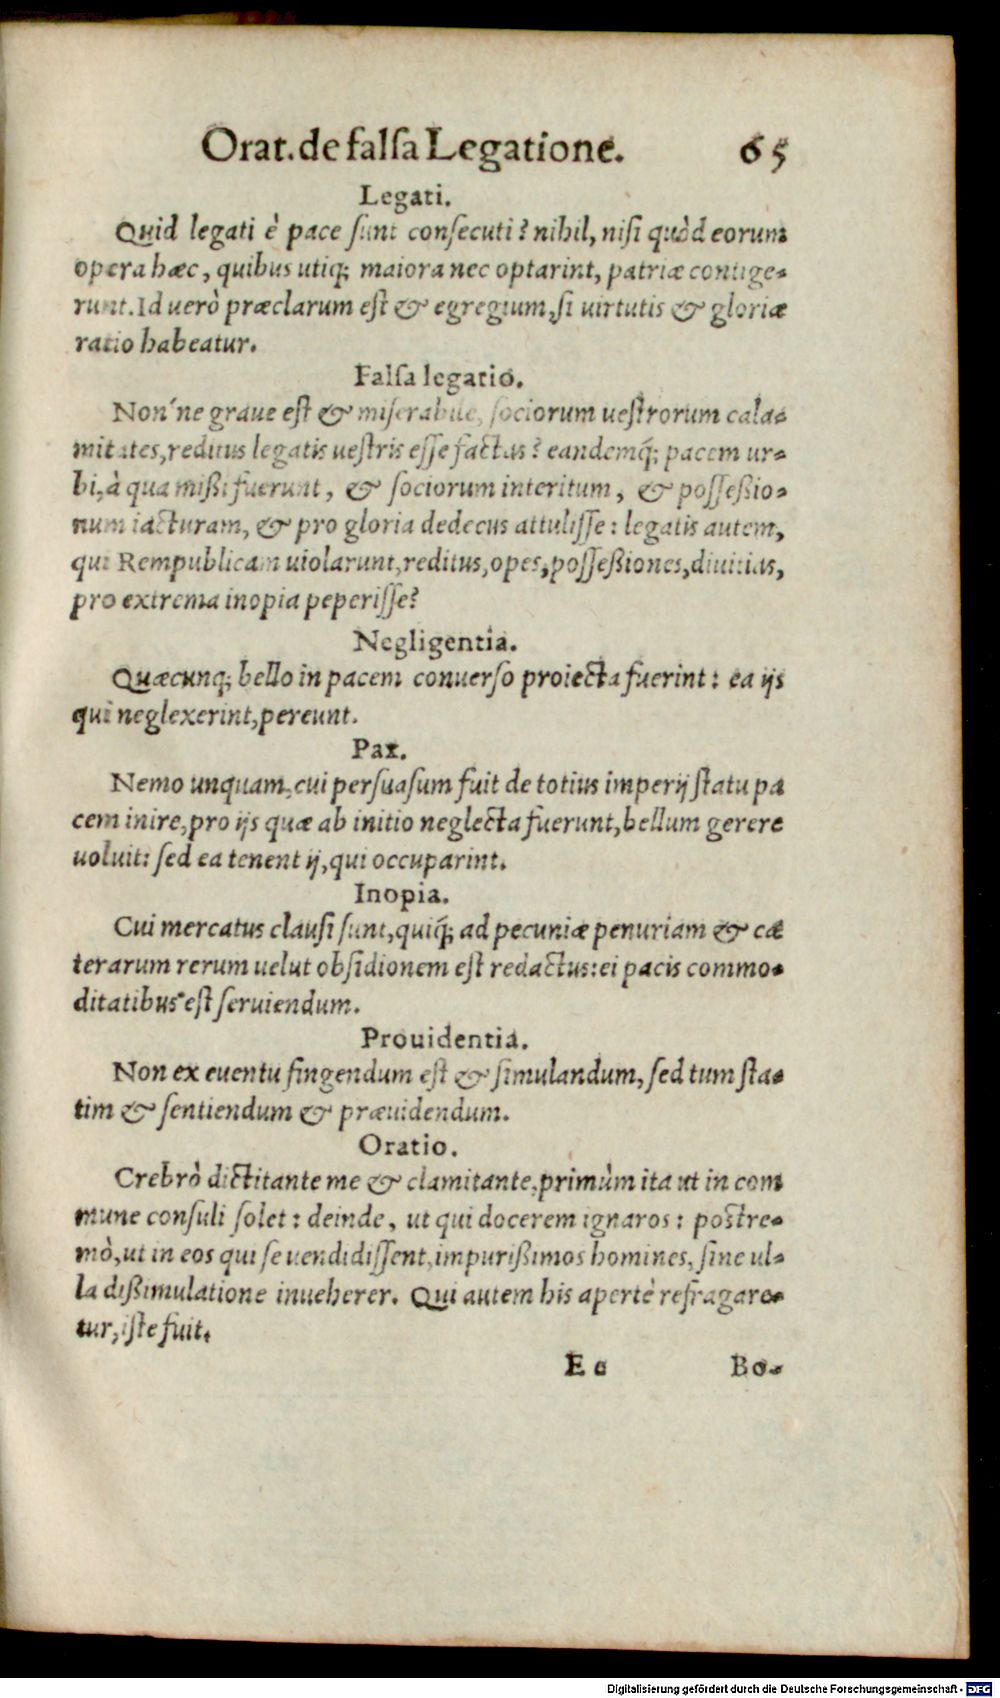 Orat. de falsa Legatione. 65
Legati.
Quid legati è pace sunt consecuti? nihil, nisi quòd eorum
opera hæc, quibus utiq; maiora nec optarint, patriæ contige-
runt. Id uerò præclarum est & egregium, si uirtutis & gloriæ
ratio habeatur.
Falsa legatio.
Non'ne graue est & miserabile, sociorum uestrorum cala-
mitates, reditus legatis uestris esse factas? eandemq́; pacem ur-
bi, à qua mißi fuerunt, & sociorum interitum, & posseßio-
num iacturam, & pro gloria dedecus attulisse: legatis autem,
qui Rempublicam uiolarunt, reditus, opes, posseßiones, diuitias,
pro extrema inopia peperisse?
Negligentia.
Quæcunq; bello in pacem conuerso proiecta fuerint: ea ijs
qui neglexerint, pereunt.
Pax.
Nemo unquam, cui persuasum fuit de totius imperij statu pa
cem inire, pro ijs quæ ab initio neglecta fuerunt, bellum gerere
uoluit: sed ea tenent ij, qui occuparint.
Inopia.
Cui mercatus clausi sunt, quiq́; ad pecuniæ penuriam & cæ
terarum rerum uelut obsidionem est redactus: ei pacis commo-
ditatibus est seruiendum.
Prouidentia.
Non ex euentu fingendum est & simulandum, sed tum sta-
tim & sentiendum & præuidendum.
Oratio.
Crebrò dictitante me & clamitante, primùm ita ut in com
mune consuli solet: deinde, ut qui docerem ignaros: postre-
mò, ut in eos qui se uendidissent, impurißimos homines, sine ul-
la dißimulatione inueherer. Qui autem his apertè refragare-
tur, iste fuit.
E e Bo-
Digitalisierung gefördert durch die Deutsche Forschungsgemeinschaft - DFG